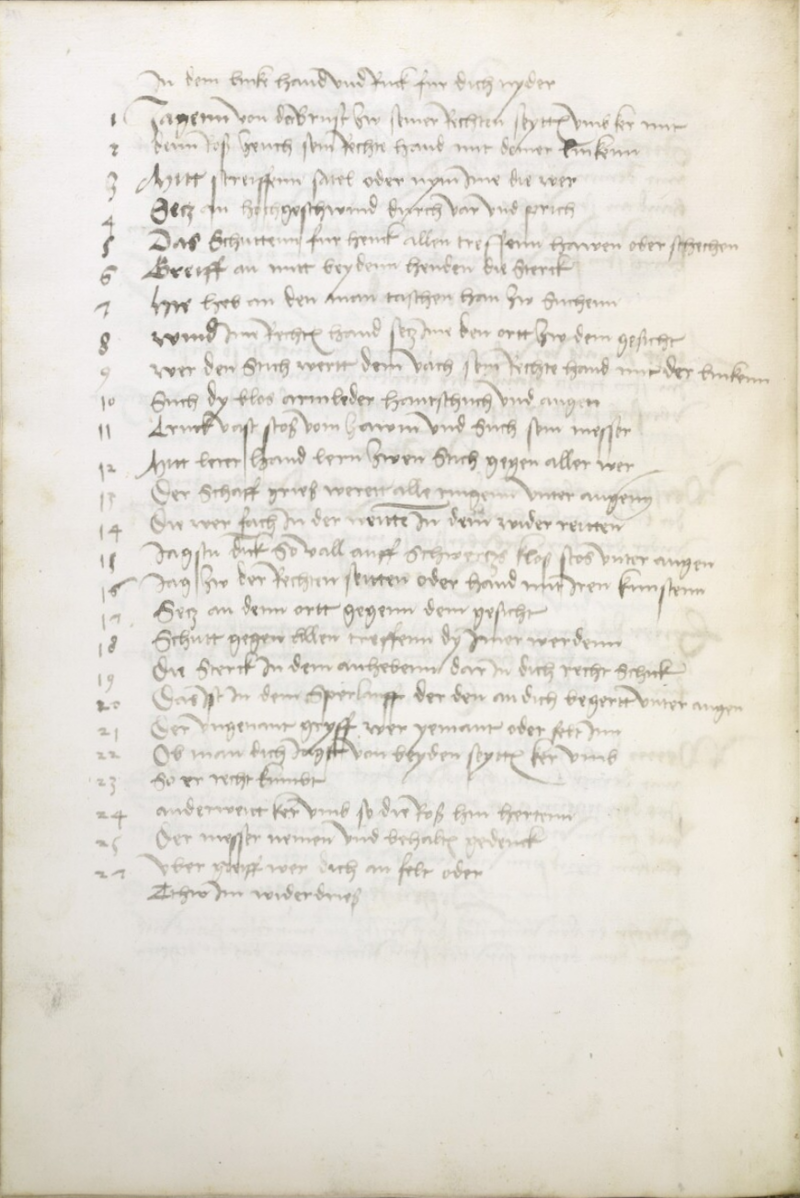 In dem linke hand vnd Ruck fur dich nyder
1 Jagenn von do Ernst zw seiner Rechten seytten vmb ker mit
2 denn Ros zeuch sein Rechte hand mit deiner linkenn
3 Mitt streiffenn satel oder nym Ime die wer
4 Secz an hochgeschwind durch var vnd prich
5 Das Schuttenn fur henck allen treffenn hawen ober schechen
6 Greiff an mitt beydenn henden die sterck
7 Hie heb an den man taschen haw zw Suchenn
8 wind Im Rechte hand secz Ime den ortt zw dem gesicht
9 wer den Stich wertt dem vach sein Rechte hand mit der linkenn
10 Such dy blos armleder hantschuch vnd augen
11 Druck vast stos vom zawm vnd Such sein messer
12 Mitt lerer hand lern zwen Strich gegen aller wer
13 Der Schaff grieb weren alle ringenn vnter augenn
14 Die wer fach In der weitte In dem wider reitten
15 Jagstu dick So vall auff Schwerczs klos stos vnter augen
16 Jag zw der Rechten seitten oder hand mit Iren kunstenn
17 Secz an denn ortt gegenn dem gesicht
18 Schutt gegen Allen treffenn dy Imer werdenn
19 Die Sterck In dem anhebenn dar In dich recht Schick
20 Das Ist In dem Sperlauff der den an dich begertt vnter augen
21 Der vngenant gryff wer yemant oder felt Im
22 Ob man dich Jagett von beyden seytten ker vmb
23 So er recht kumbt
24 anderweit ker vmb so die Ros hin hertenn
25 Der messer nemen vnd behalten gedenck
27 vber greiff wer dich an felt oder
Thw Im widerdries